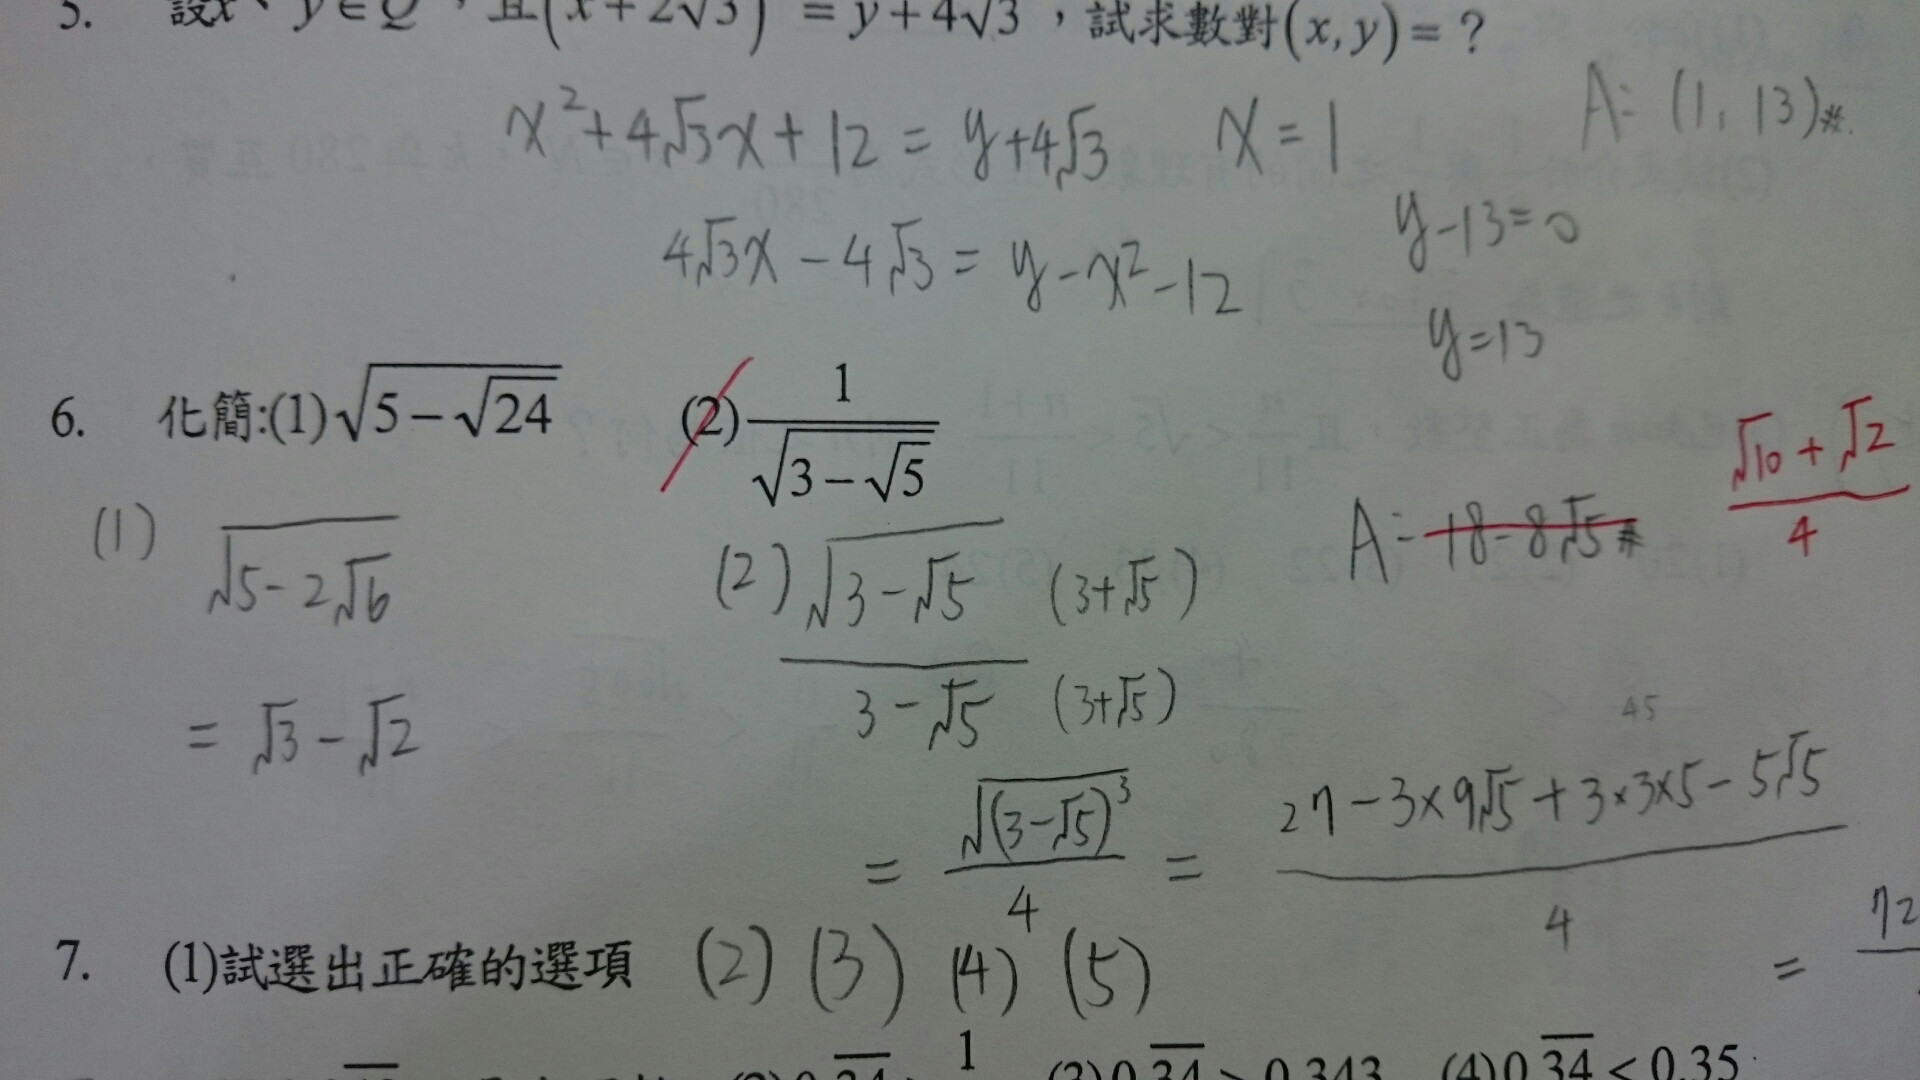 5. 設x、y∈Q，且(x+2√3)² = y+4√3，試求數對(x, y) = ？
x²+4√3x+12 = y+4√3 x=1 A: (1, 13)#.
4√3x-4√3 = y-x²-12 y-13=0
y=13
6. 化簡:(1)√(5-√24) (2) 1/√(3-√5)
(1) √(5-2√6) (2) √(3-√5) (3+√5) / 3-√5 (3+√5) A: 18-8√5# (√10+√2)/4
= √3-√2
= √(3-√5)³ / 4 = (27-3×9√5+3×3×5-5√5) / 4
45
= 72
7. (1)試選出正確的選項 (2) (3) (4) (5)
1 (3)0.34 > 0.343 (4)0.34 < 0.35